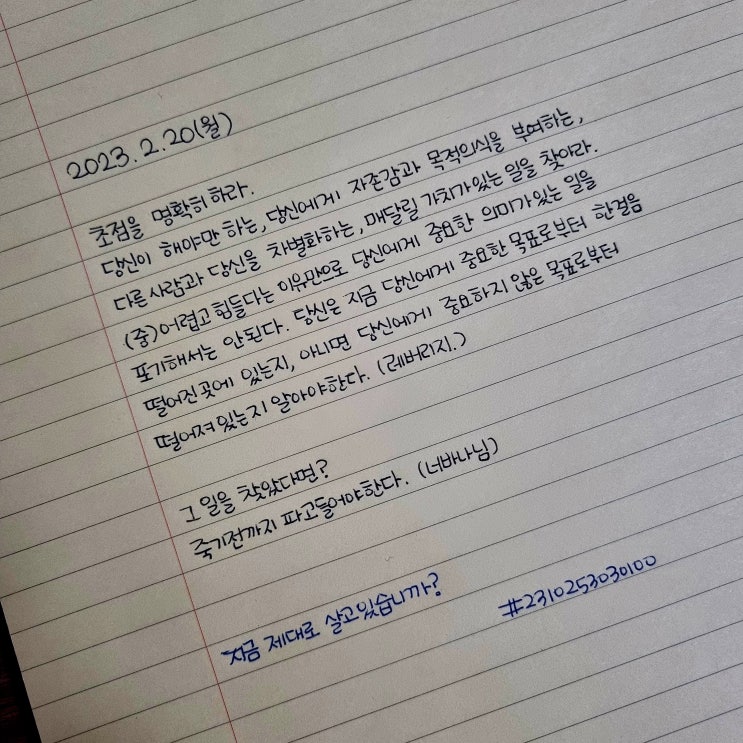 2023. 2. 20(월)
초점을 명확히 하라.
당신이 해야만 하는, 당신에게 자존감과 목적의식을 부여하는,
다른 사람과 당신을 차별화하는, 매달릴 가치가 있는 일을 찾아라.
(중)어렵고 힘들다는 이유만으로 당신에게 중요한 의미가 있는 일을
포기해서는 안된다. 당신은 지금 당신에게 중요한 목표로부터 한걸음
떨어진 곳에 있는지, 아니면 당신에게 중요하지 않은 목표로부터
떨어져 있는지 알아야한다. (레버리지.)
그 일을 찾았다면?
죽기전까지 파고들어야한다. (너바나님)
지금 제대로 살고있습니까?
#2310253030100